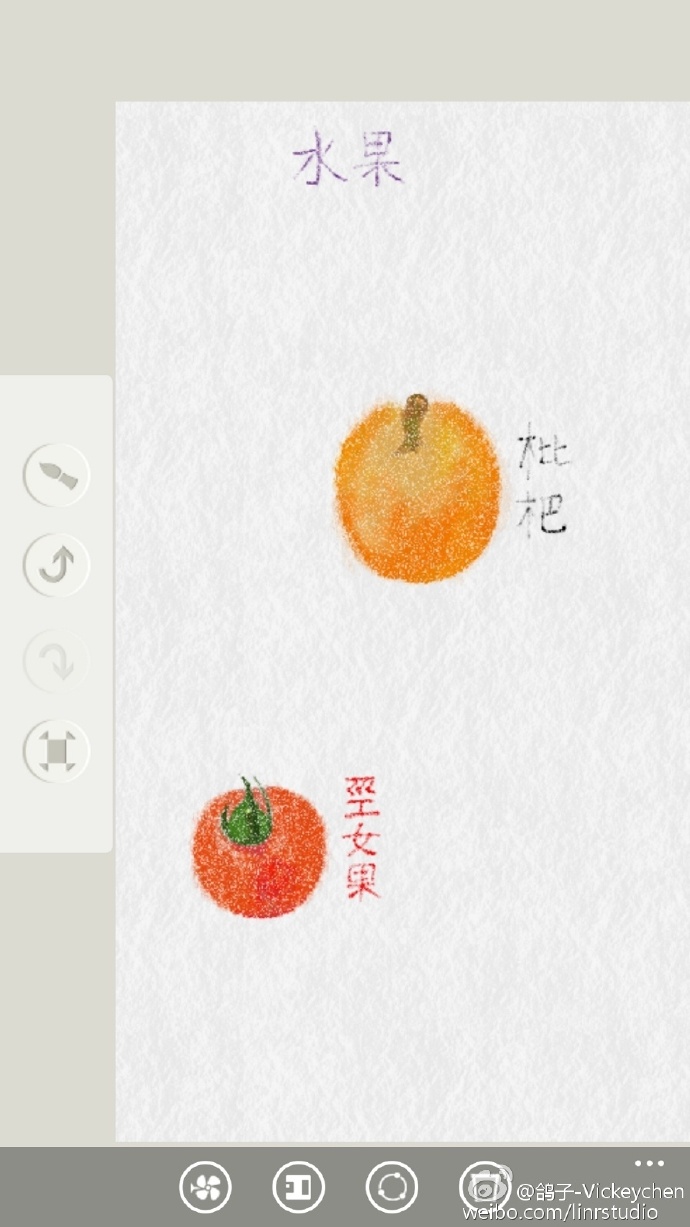 水果
枇杷
圣女果
@鸽子-Vickeychen
weibo.com/linrstudio